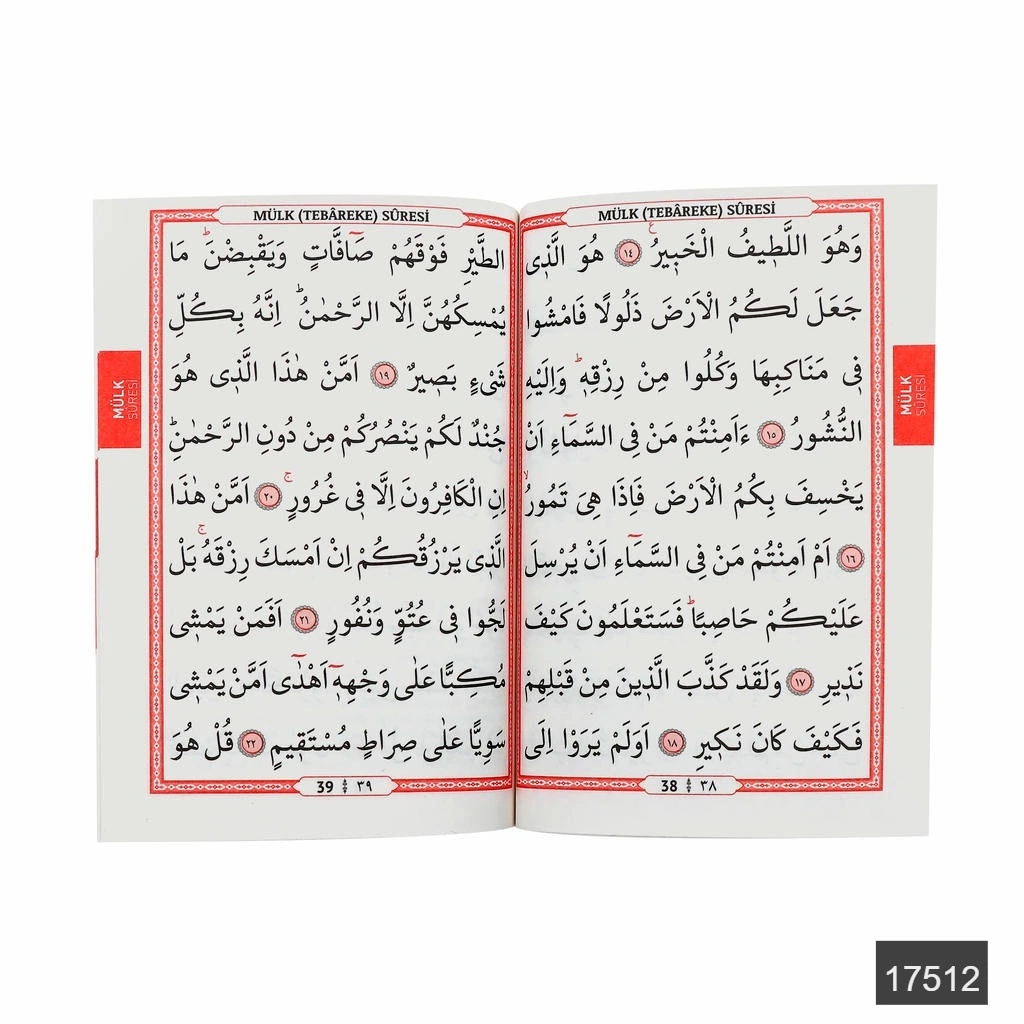 MÜLK (TEBÂREKE) SÛRESİ
وَهُوَ اللَّطِيفُ الْخَبِيرُ ﴿١٤﴾ هُوَ الَّذِى
جَعَلَ لَكُمُ الْاَرْضَ ذَلُولًا فَامْشُوا
فِى مَنَاكِبِهَا وَكُلُوا مِنْ رِزْقِهِ وَاِلَيْهِ
النُّشُورُ ﴿١٥﴾ ءَاَمِنْتُمْ مَنْ فِى السَّمَٓاءِ اَنْ
يَخْسِفَ بِكُمُ الْاَرْضَ فَاِذَا هِىَ تَمُورُ
﴿١٦﴾ اَمْ اَمِنْتُمْ مَنْ فِى السَّمَٓاءِ اَنْ يُرْسِلَ
عَلَيْكُمْ حَاصِبًا فَسَتَعْلَمُونَ كَيْفَ
نَذِيرِ ﴿١٧﴾ وَلَقَدْ كَذَّبَ الَّذِينَ مِنْ قَبْلِهِمْ
فَكَيْفَ كَانَ نَكِيرِ ﴿١٨﴾ اَوَلَمْ يَرَوْا اِلَى
38 ٣٨
MÜLK SÛRESİ
MÜLK (TEBÂREKE) SÛRESİ
الطَّيْرِ فَوْقَهُمْ صَٓافَّاتٍ وَيَقْبِضْنَ مَا
يُمْسِكُهُنَّ اِلَّا الرَّحْمٰنُ اِنَّهُ بِكُلِّ
شَىْءٍ بَصِيرٌ ﴿١٩﴾ اَمَّنْ هٰذَا الَّذِى هُوَ
جُنْدٌ لَكُمْ يَنْصُرُكُمْ مِنْ دُونِ الرَّحْمٰنِ
اِنِ الْكَافِرُونَ اِلَّا فِى غُرُورٍ ﴿٢٠﴾ اَمَّنْ هٰذَا
الَّذِى يَرْزُقُكُمْ اِنْ اَمْسَكَ رِزْقَهُ بَلْ
لَجُّوا فِى عُتُوٍّ وَنُفُورٍ ﴿٢١﴾ اَفَمَنْ يَمْشِى
مُكِبًّا عَلٰى وَجْهِهِٓ اَهْدٰٓى اَمَّنْ يَمْشِى
سَوِيًّا عَلٰى صِرَاطٍ مُسْتَقِيمٍ ﴿٢٢﴾ قُلْ هُوَ
39 ٣٩
MÜLK SÛRESİ
17512